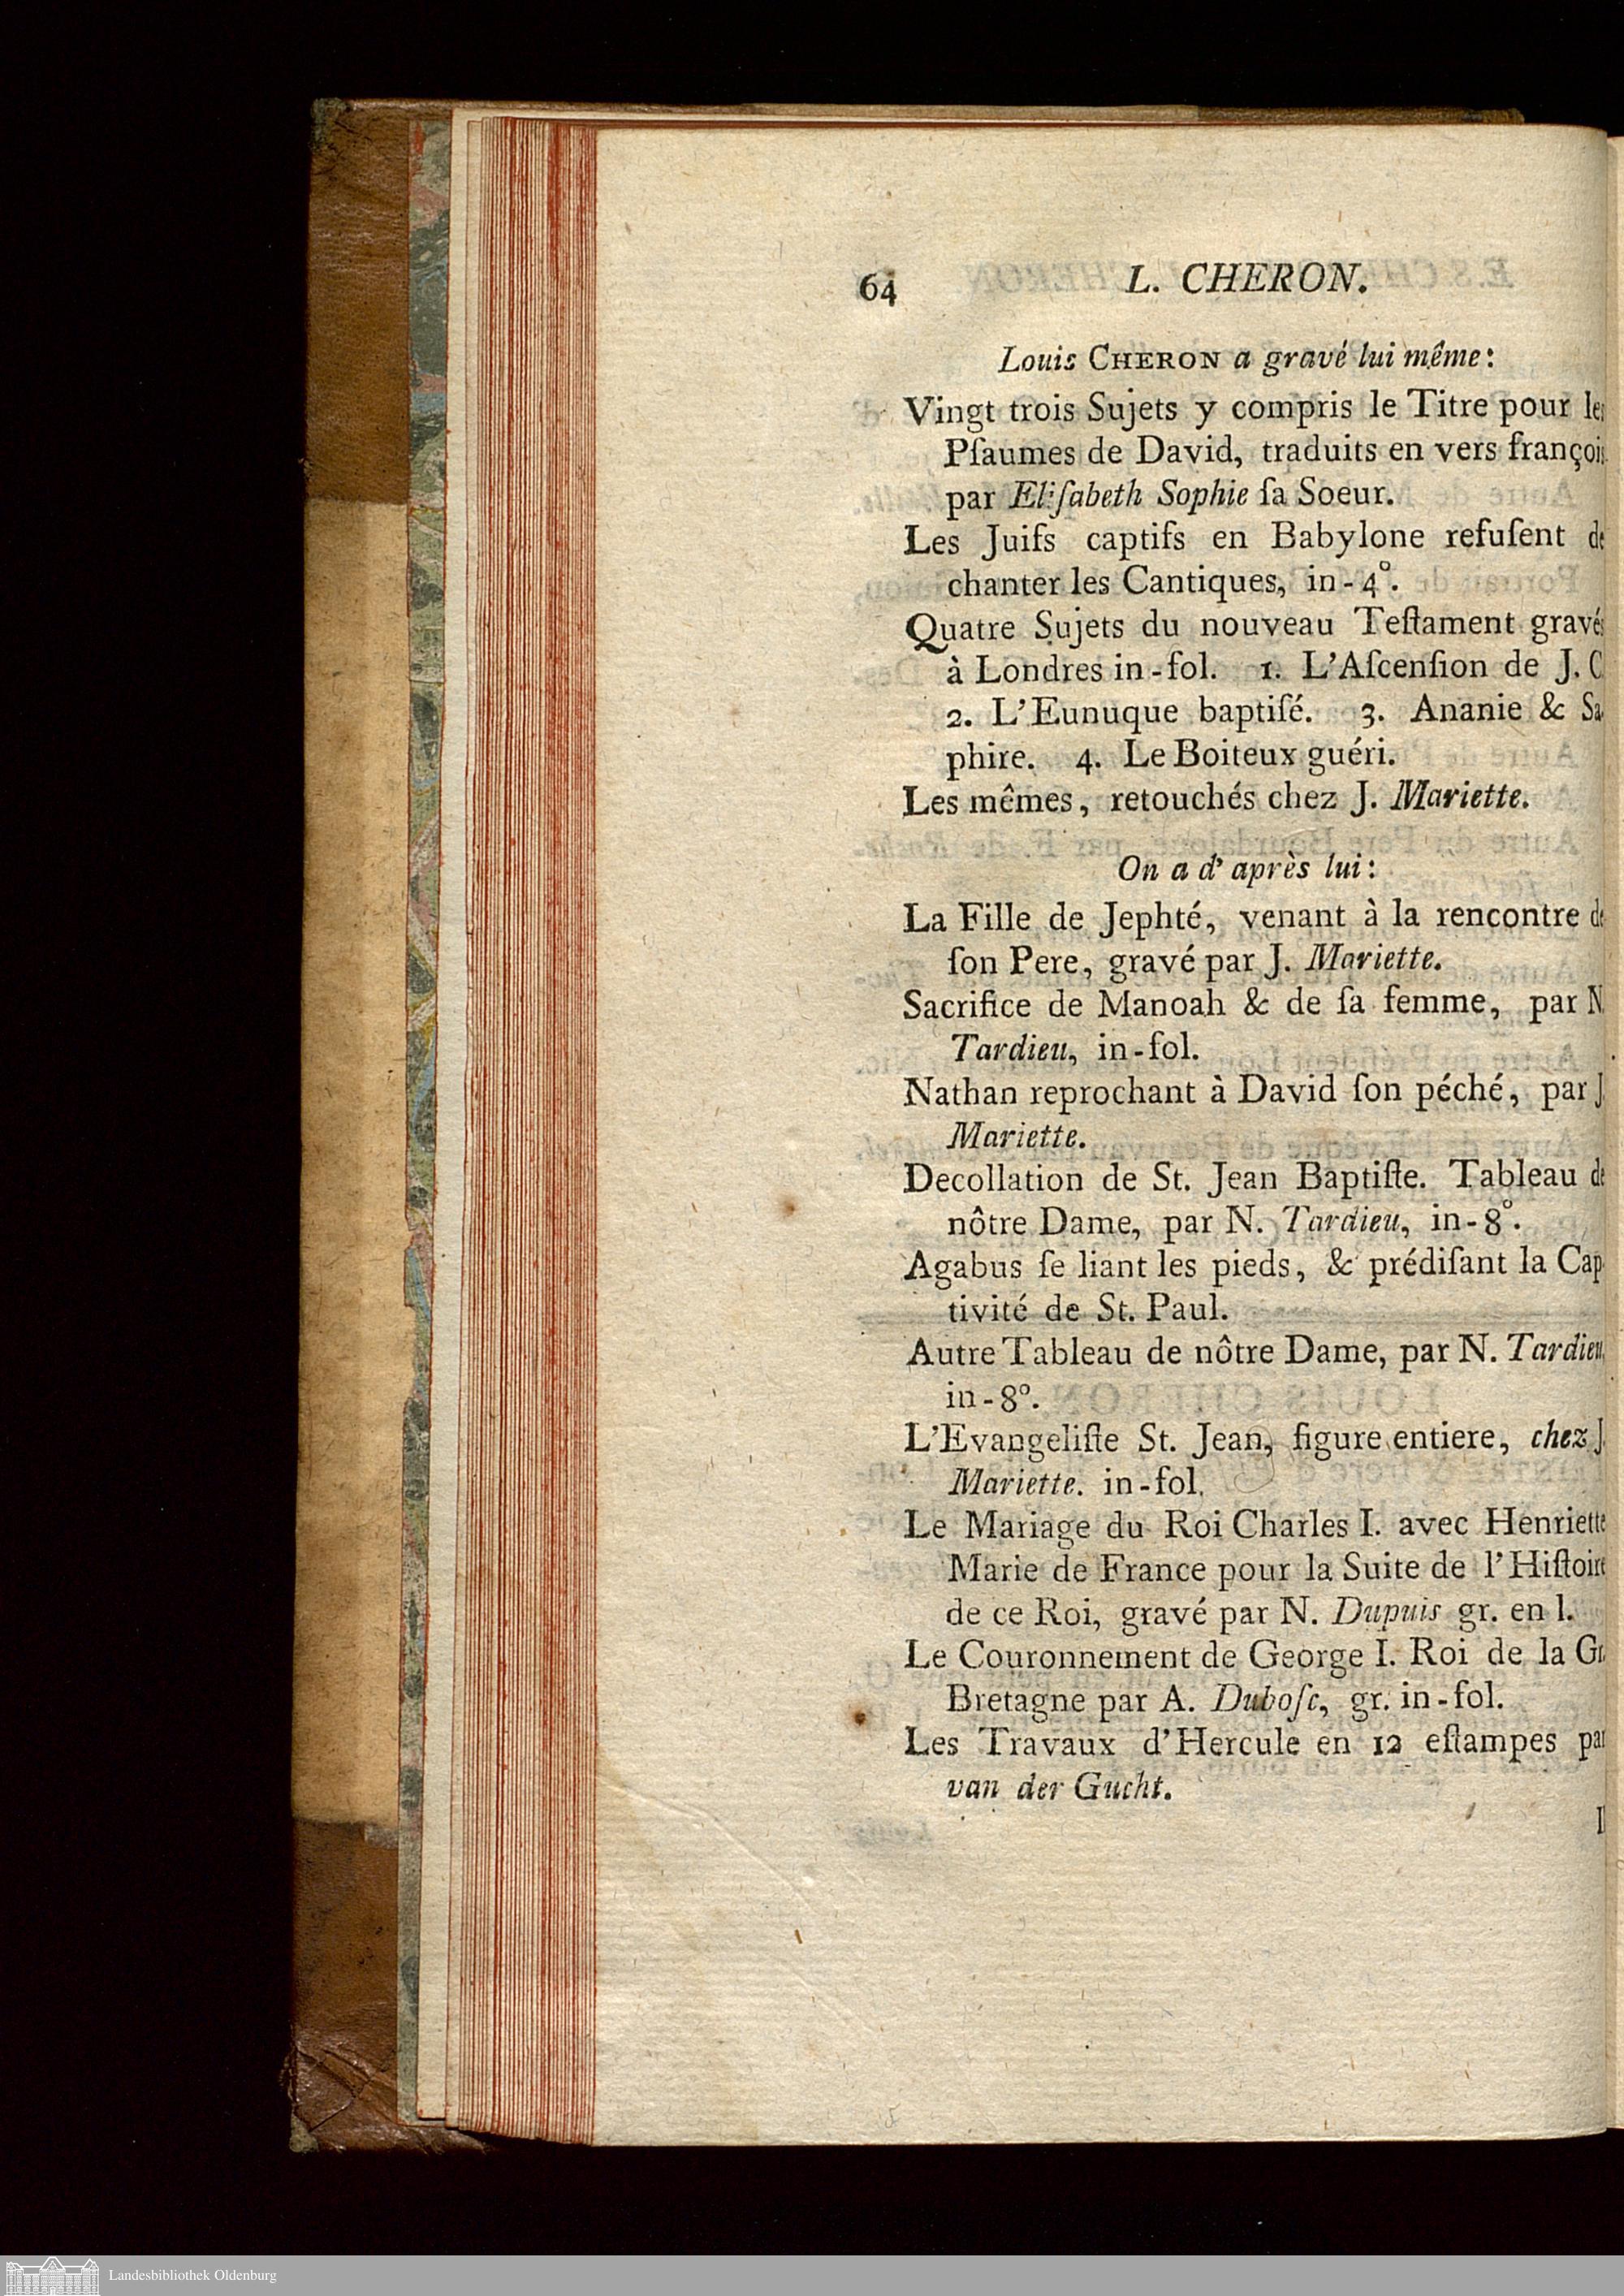 64 L. CHERON.
Louis CHERON a gravé lui même:
Vingt trois Sujets y compris le Titre pour les
Pſaumes de David, traduits en vers françois
par Eliſabeth Sophie ſa Soeur.
Les Juifs captifs en Babylone refuſent de
chanter les Cantiques, in-4°.
Quatre Sujets du nouveau Teſtament gravés
à Londres in-fol. 1. L'Aſcenſion de J. C.
2. L'Eunuque baptiſé. 3. Ananie & Sa-
phire. 4. Le Boiteux guéri.
Les mêmes, retouchés chez J. Mariette.
On a d'après lui:
La Fille de Jephté, venant à la rencontre de
ſon Pere, gravé par J. Mariette.
Sacrifice de Manoah & de ſa femme, par N.
Tardieu, in-fol.
Nathan reprochant à David ſon péché, par J.
Mariette.
Decollation de St. Jean Baptiſte. Tableau de
nôtre Dame, par N. Tardieu, in-8°.
Agabus ſe liant les pieds, & prédiſant la Cap-
tivité de St. Paul.
Autre Tableau de nôtre Dame, par N. Tardieu,
in-8°.
L'Evangeliſte St. Jean, figure entiere, chez J.
Mariette. in-fol.
Le Mariage du Roi Charles I. avec Henriette
Marie de France pour la Suite de l'Hiſtoire
de ce Roi, gravé par N. Dupuis gr. en l.
Le Couronnement de George I. Roi de la Gr.
Bretagne par A. Duboſc, gr. in-fol.
Les Travaux d'Hercule en 12 eſtampes par
van der Gucht.
Landesbibliothek Oldenburg